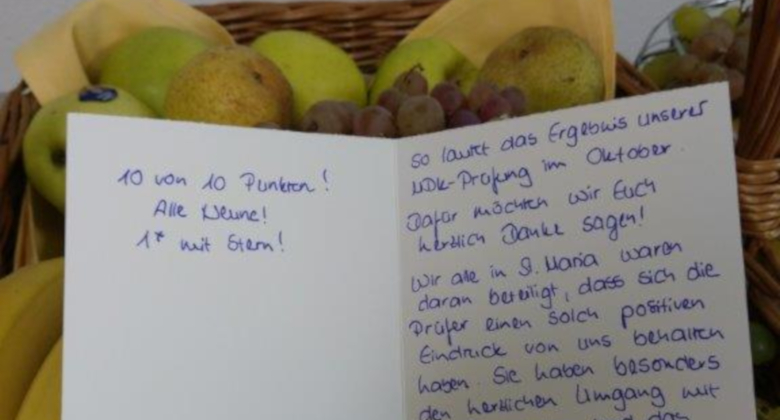 10 von 10 Punkten!
Alle Neune!
1* mit Stern!
So lautet das Ergebnis unserer
MDK-Prüfung im Oktober.
Dafür möchten wir Euch
herzlich Danke sagen!
Wir alle in St. Maria waren
daran beteiligt, dass sich die
Prüfer einen solch positiven
Eindruck von uns behalten
haben. Sie haben besonders
den herzlichen Umgang mit
das